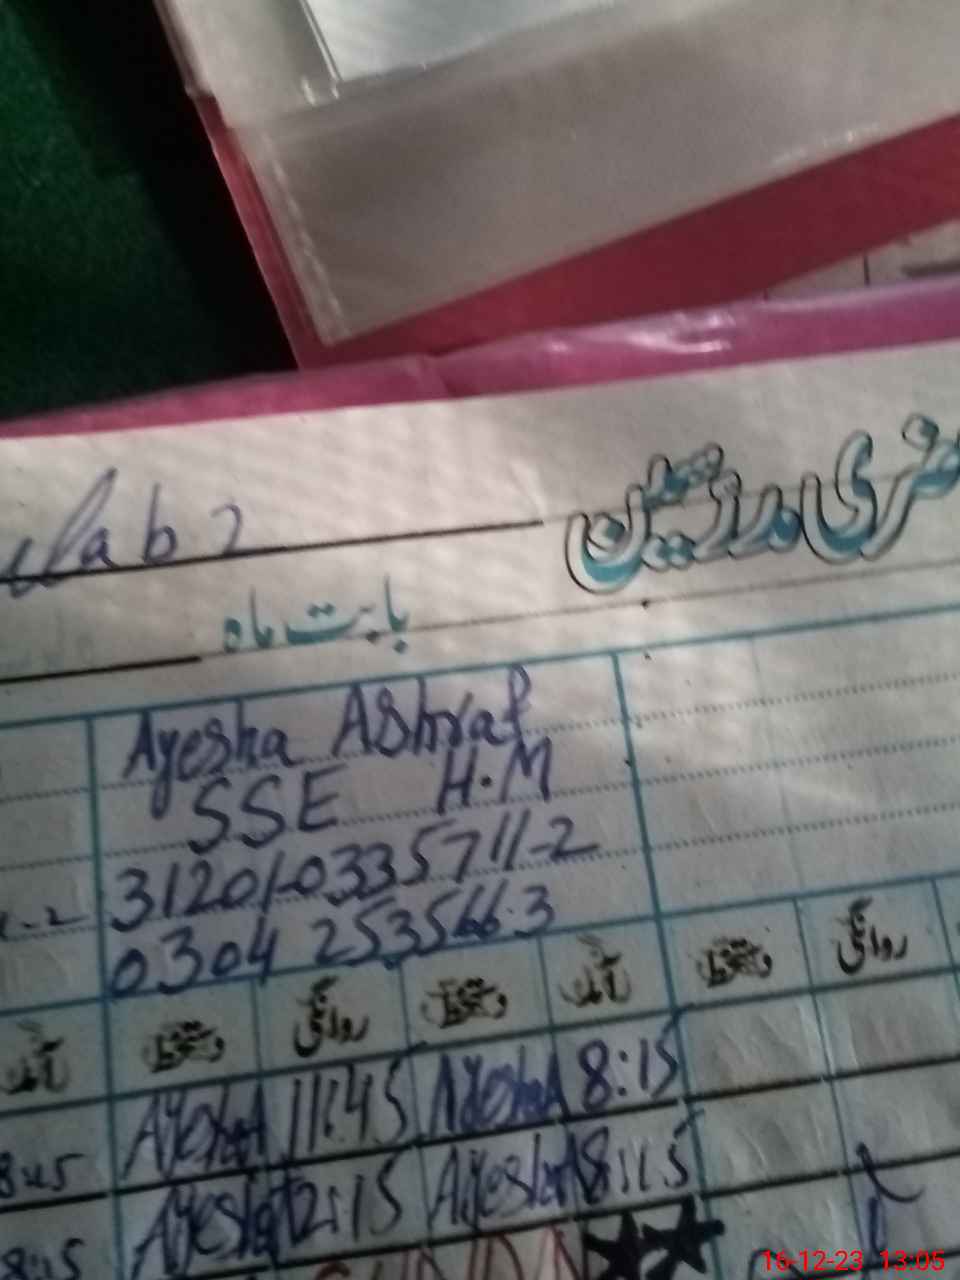 lab 2
حاضری مدرسین
بابت ماہ
Ayesha Ashraf
SSE H.M
31201-0335711-2
0304 2535663
آمد دستخط روانگی دستخط آمد دستخط روانگی
8:15 Ayesha A 11:45 Ayesha A 8:15
8:15 Ayesha 12:15 Ayesha A 8:15
16-12-23 13:05